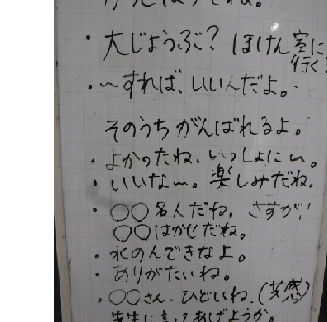 ・大じょうぶ？ ほけん室に
行く
・〜すれば、いいんだよ。
そのうちがんばれるよ。
・よかったね、いっしょに
・いいな〜。楽しみだね。
・○○名人だね。さすが！
○○はかせだね。
・水のんできなよ。
・ありがたいね。
・○○さん、ひどいね。(共感)
先生に言ってあげようか。